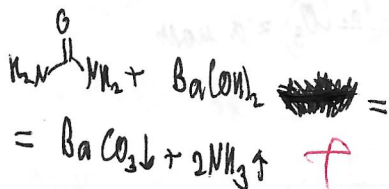 O
H₂N NH₂ + Ba(OH)₂ =
= BaCO₃↓ + 2NH₃↑ +